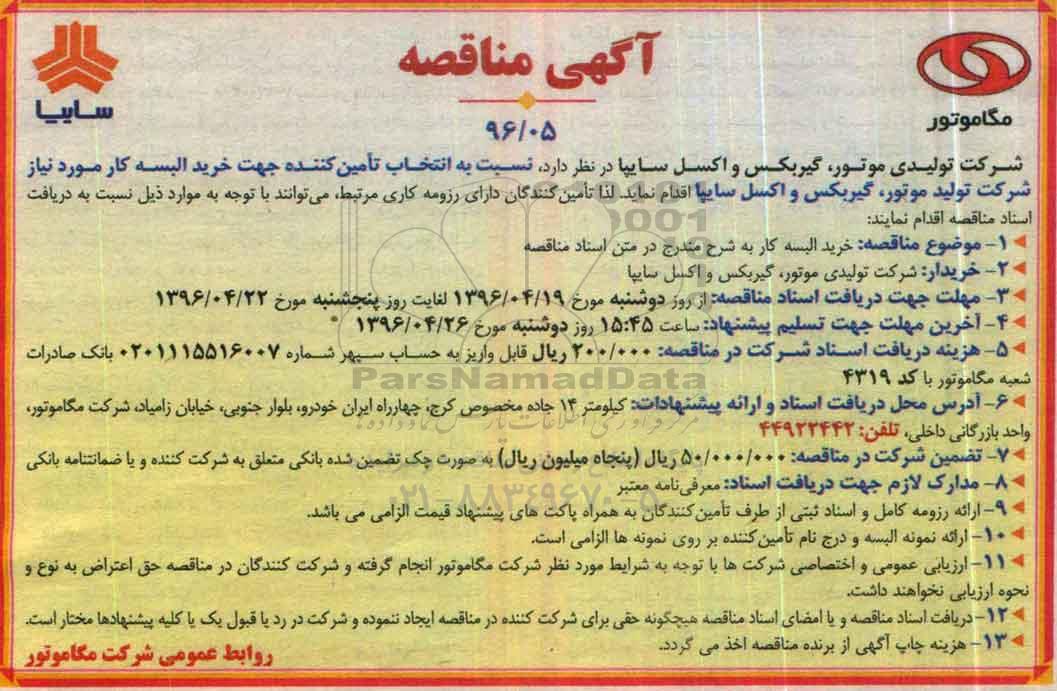 آگهی مناقصه
سایپا
مگاموتور
۹۶/۰۵
شرکت تولیدی موتور، گیربکس و اکسل سایپا در نظر دارد، نسبت به انتخاب تأمین‌کننده جهت خرید البسه کار مورد نیاز
شرکت تولید موتور، گیربکس و اکسل سایپا اقدام نماید. لذا تأمین‌کنندگان دارای رزومه کاری مرتبط، می‌توانند با توجه به موارد ذیل نسبت به دریافت
اسناد مناقصه اقدام نمایند:
۱- موضوع مناقصه: خرید البسه کار به شرح مندرج در متن اسناد مناقصه
۲- خریدار: شرکت تولیدی موتور، گیربکس و اکسل سایپا
۳- مهلت جهت دریافت اسناد مناقصه: از روز دوشنبه مورخ ۱۳۹۶/۰۴/۱۹ لغایت روز پنجشنبه مورخ ۱۳۹۶/۰۴/۲۲
۴- آخرین مهلت جهت تسلیم پیشنهاد: ساعت ۱۵:۴۵ روز دوشنبه مورخ ۱۳۹۶/۰۴/۲۶
۵- هزینه دریافت اسناد شرکت در مناقصه: ۲۰۰/۰۰۰ ریال قابل واریز به حساب سپهر شماره ۰۲۰۱۱۱۵۵۱۶۰۰۷ بانک صادرات
شعبه مگاموتور با کد ۴۳۱۹
ParsNamadData
۶- آدرس محل دریافت اسناد و ارائه پیشنهادات: کیلومتر ۱۴ جاده مخصوص کرج، چهارراه ایران خودرو، بلوار جنوبی، خیابان زامیاد، شرکت مگاموتور،
واحد بازرگانی داخلی، تلفن: ۴۴۹۲۲۴۴۲
۷- تضمین شرکت در مناقصه: ۵۰/۰۰۰/۰۰۰ ریال (پنجاه میلیون ریال) به صورت چک تضمین شده بانکی متعلق به شرکت کننده و یا ضمانتنامه بانکی
۸- مدارک لازم جهت دریافت اسناد: معرفی‌نامه معتبر
۰۲۱-۸۸۳۴۹۶۷۰-۵
۹- ارائه رزومه کامل و اسناد ثبتی از طرف تأمین‌کنندگان به همراه پاکت های پیشنهاد قیمت الزامی می باشد.
۱۰- ارائه نمونه البسه و درج نام تأمین‌کننده بر روی نمونه ها الزامی است.
۱۱- ارزیابی عمومی و اختصاصی شرکت ها با توجه به شرایط مورد نظر شرکت مگاموتور انجام گرفته و شرکت کنندگان در مناقصه حق اعتراض به نوع و
نحوه ارزیابی نخواهند داشت.
۱۲- دریافت اسناد مناقصه و یا امضای اسناد مناقصه هیچگونه حقی برای شرکت کننده در مناقصه ایجاد ننموده و شرکت در رد یا قبول یک یا کلیه پیشنهادها مختار است.
۱۳- هزینه چاپ آگهی از برنده مناقصه اخذ می گردد.
روابط عمومی شرکت مگاموتور